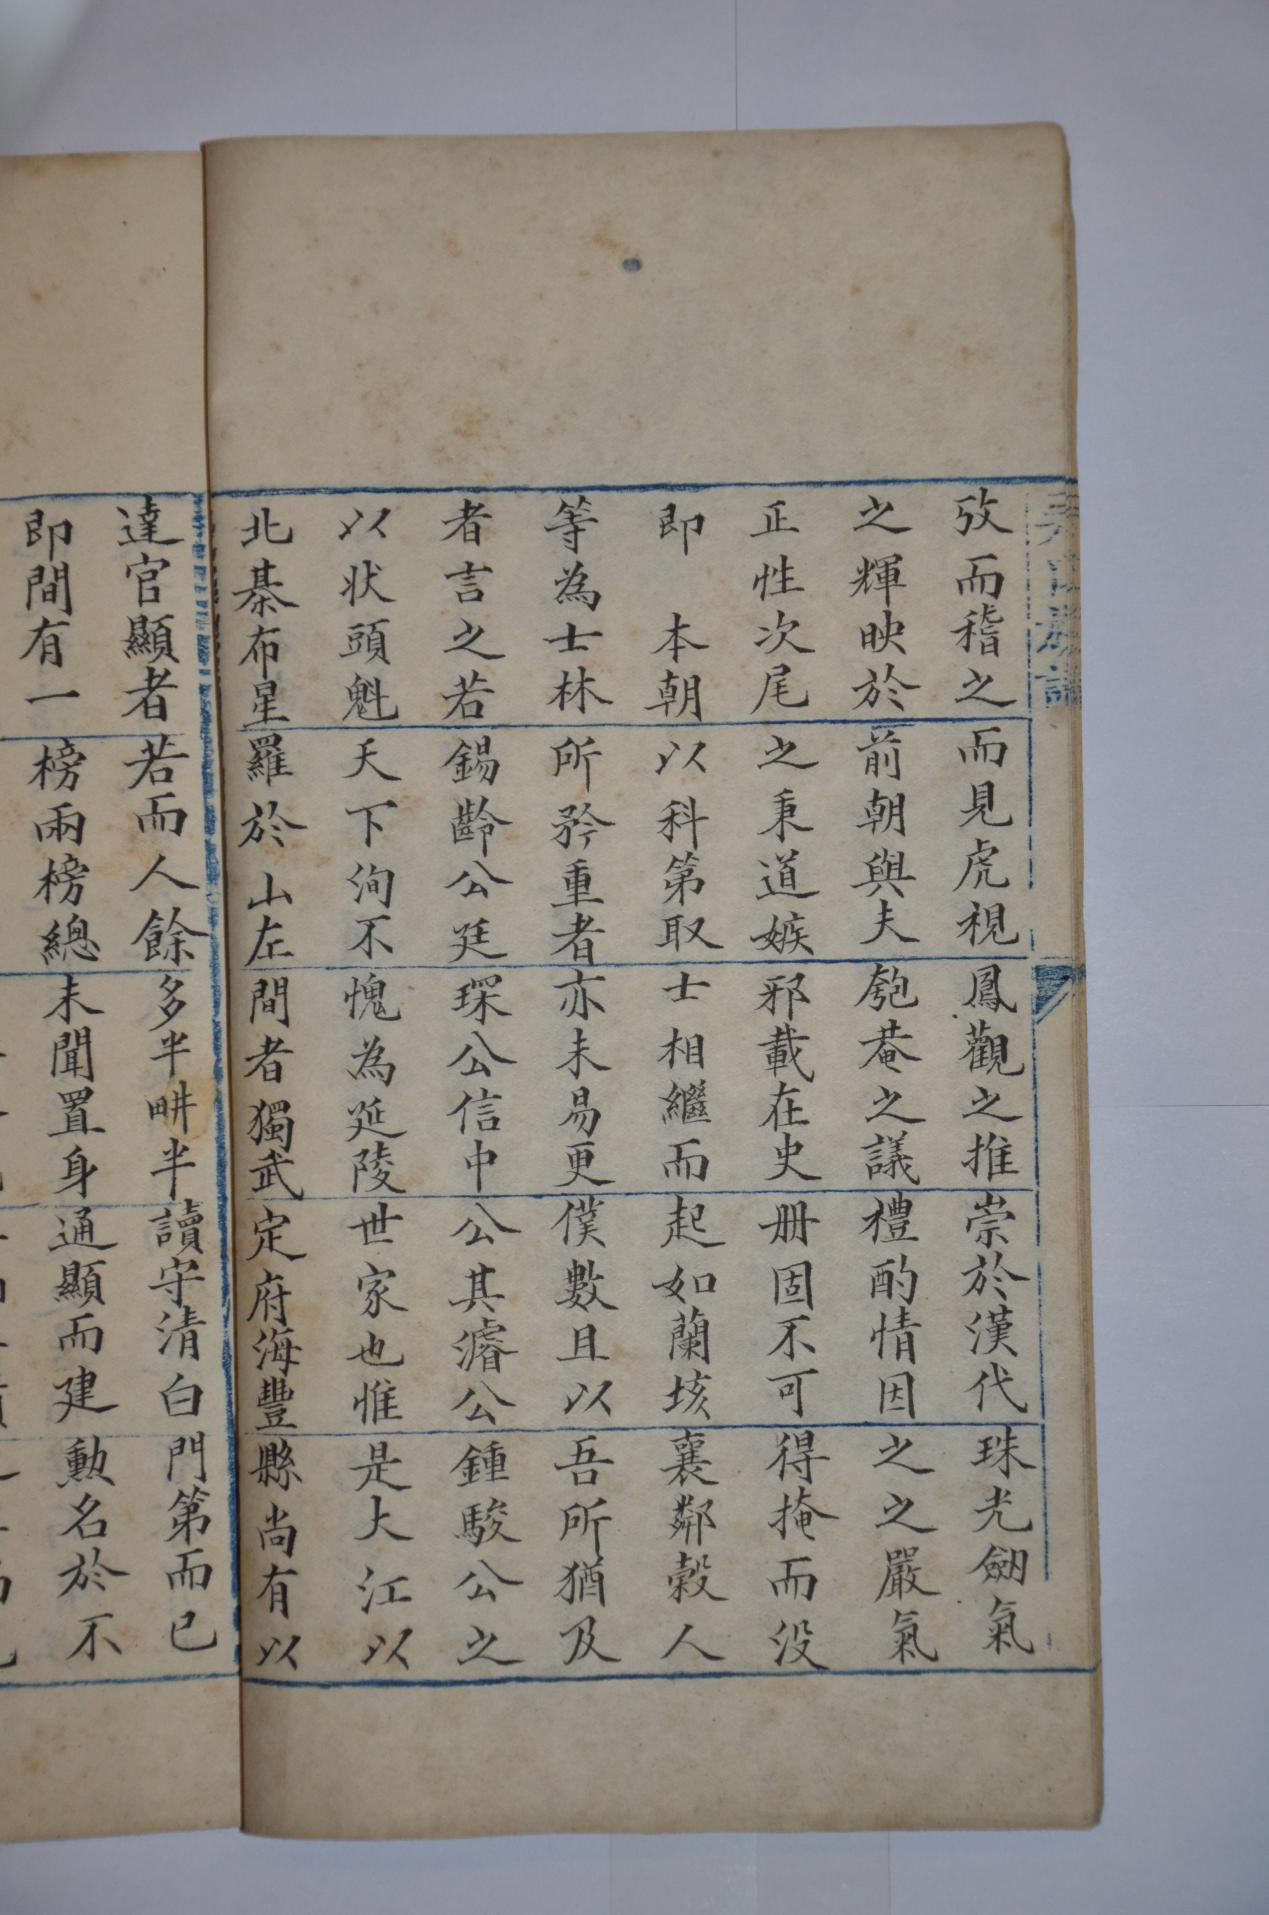 攷而稽之而見虎視鳳觀之推崇於漢代珠光劒氣
之輝映於前朝與夫匏菴之議禮酌情因之之嚴氣
正性次尾之秉道嫉邪載在史册固不可得掩而没
即 本朝以科第取士相繼而起如蘭垓襄鄰穀人
等為士林所矜重者亦未易更僕數且以吾所猶及
者言之若錫齡公廷琛公信中公其濬公鍾駿公之
以状頭魁天下洵不愧為延陵世家也惟是大江以
北棊布星羅於山左間者獨武定府海豐縣尚有以
達官顯者若而人餘多半畊半讀守清白門第而已
即間有一榜兩榜總未聞置身通顯而建勲名於不